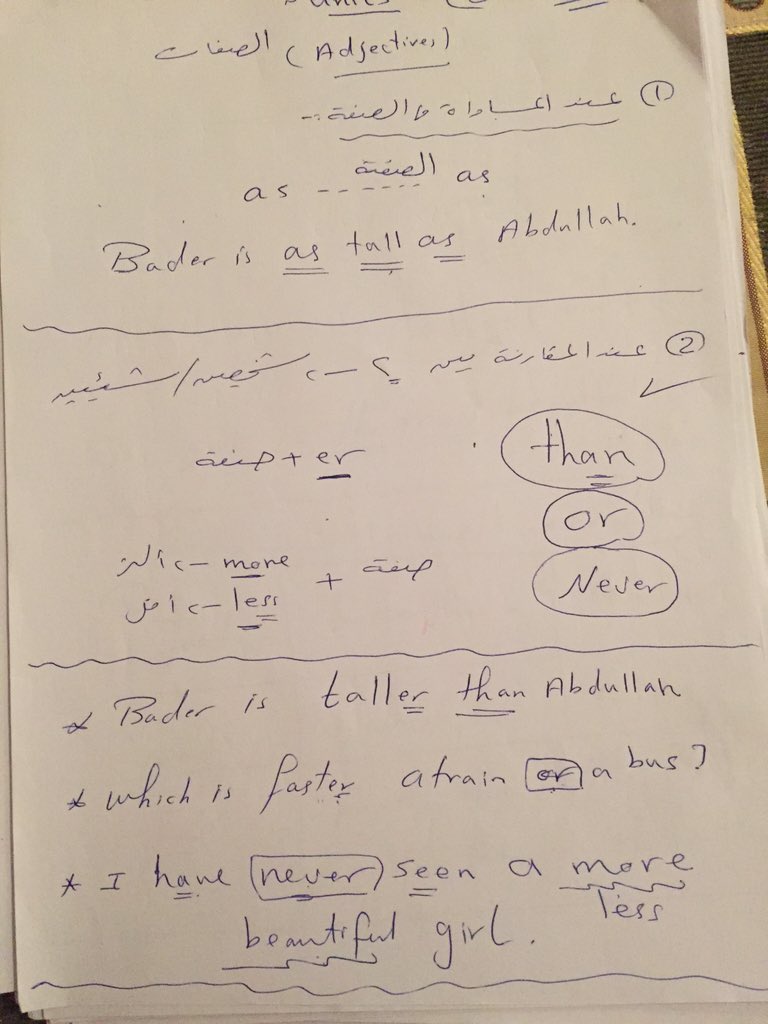 الصفات (Adjectives)
① عند المساواة في الصفة :-
as ------ الصفة as
Bader is as tall as Abdullah.
② عند المقارنة بين ٢ -> شخصين/شيئين
صفة + er
than
or
Never
أكثر <- more + صفة
أقل <- less
* Bader is taller than Abdullah
* which is faster a train or a bus?
* I have never seen a more
less
beautiful girl.